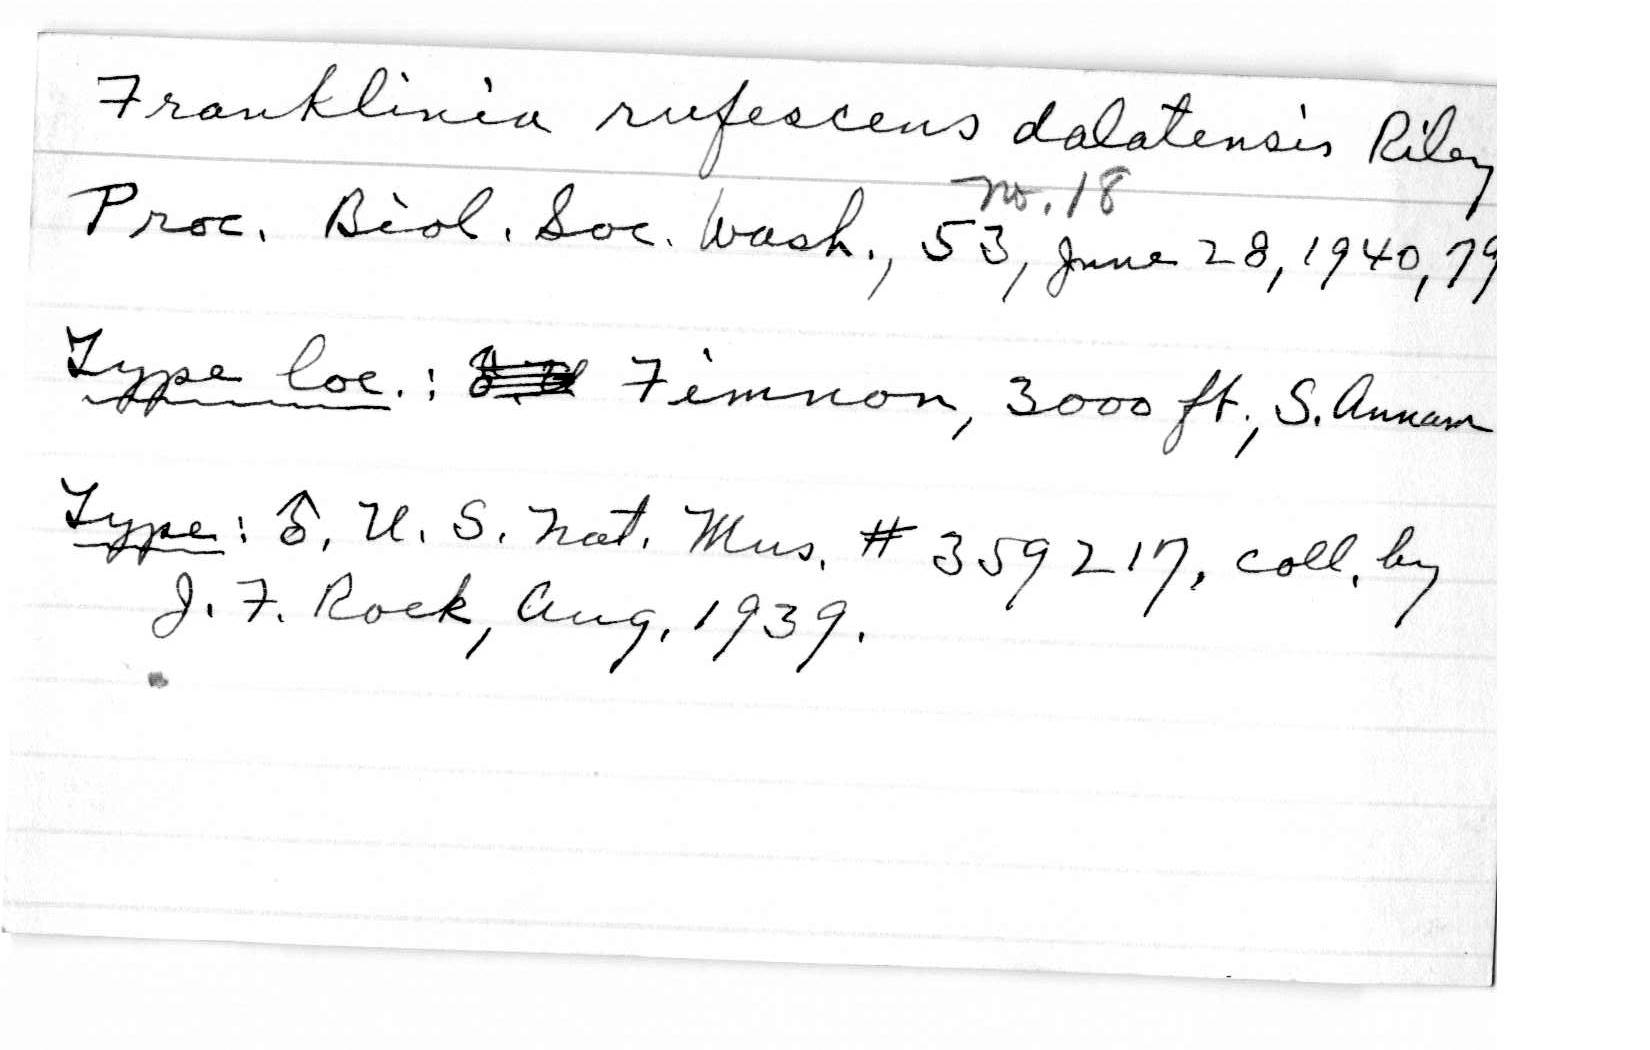 Franklinia rufescens dalatensis Riley
no. 18
Proc. Biol. Soc. Wash., 53, June 28, 1940, 79
Type loc.: Fimnon, 3000 ft., S. Annam
Type: ♂, U. S. Nat. Mus. # 359217, coll. by
J. F. Rock, Aug. 1939.